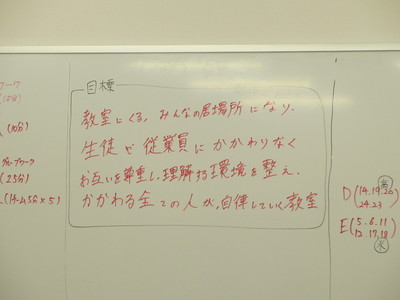 ワーク
(15分)
(10分)
グループワーク
(25分)
(14-4.5分×5)
目標
教室にくる、みんなの居場所になり、
生徒や従業員にかかわりなく
お互いを尊重し、理解する環境を整え、
かかわる全ての人が、自律していく教室
D(14.19.26
24.23)
E(5.6.11
12.17.18)